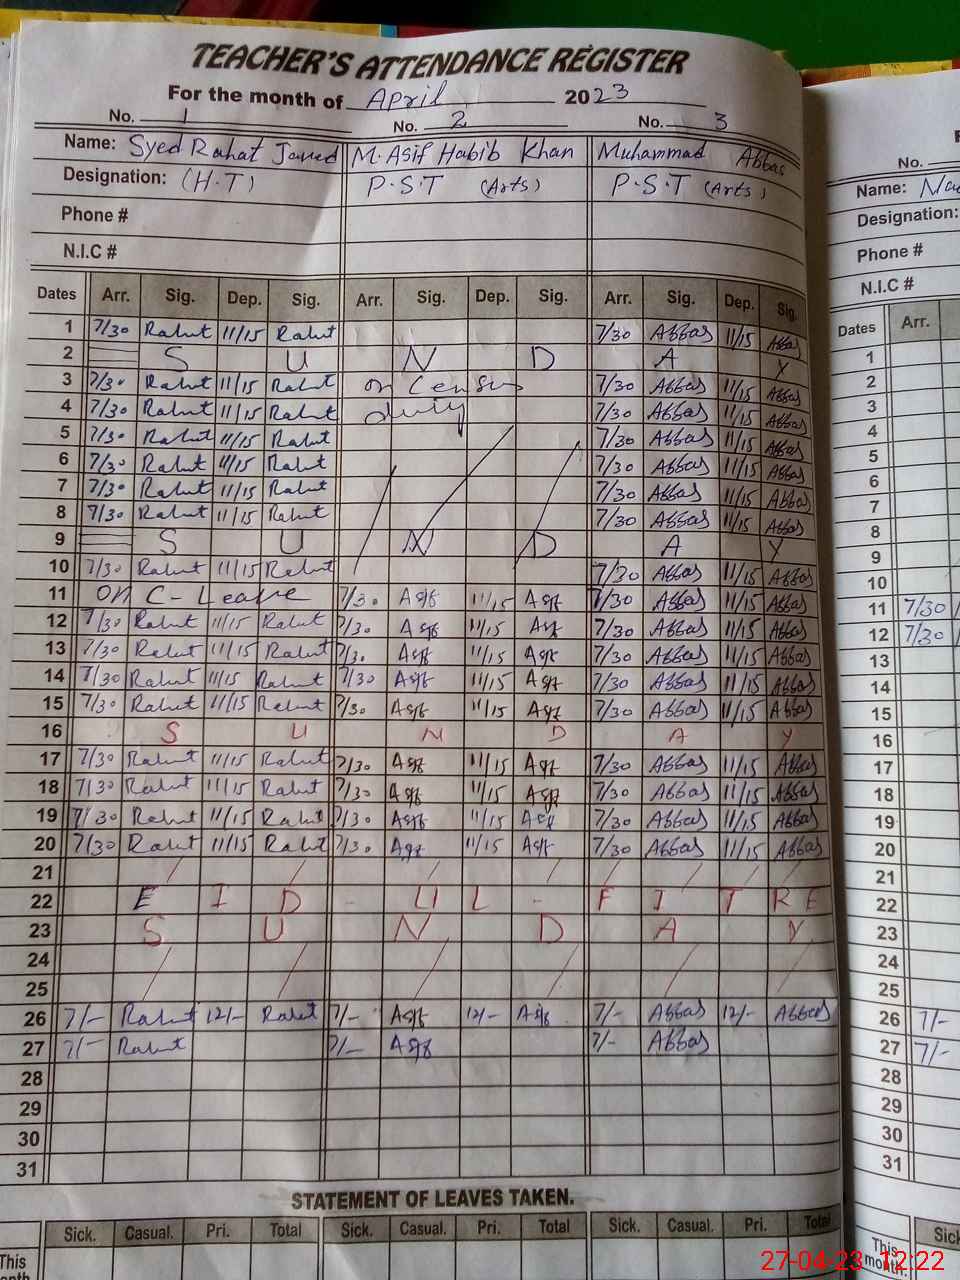 TEACHER'S ATTENDANCE REGISTER
For the month of April 2023
No. 1 No. 2 No. 3
Name: Syed Rahat Javed M. Asif Habib Khan Muhammad Abbas
Designation: (H.T) P.S.T (Arts) P.S.T (Arts)
Phone #
N.I.C #
Dates Arr. Sig. Dep. Sig. Arr. Sig. Dep. Sig. Arr. Sig. Dep. Sig.
1 7/30 Rahat 11/15 Rahat 7/30 Abbas 11/15 Abbas
2 S U N D A Y
3 7/30 Rahat 11/15 Rahat on Census 7/30 Abbas 11/15 Abbas
4 7/30 Rahat 11/15 Rahat duty 7/30 Abbas 11/15 Abbas
5 7/30 Rahat 11/15 Rahat 7/30 Abbas 11/15 Abbas
6 7/30 Rahat 11/15 Rahat 7/30 Abbas 11/15 Abbas
7 7/30 Rahat 11/15 Rahat 7/30 Abbas 11/15 Abbas
8 7/30 Rahat 11/15 Rahat 7/30 Abbas 11/15 Abbas
9 S U N D A Y
10 7/30 Rahat 11/15 Rahat 7/30 Abbas 11/15 Abbas
11 on C-Leave 7/30 Asif 11/15 Asif 7/30 Abbas 11/15 Abbas
12 7/30 Rahat 11/15 Rahat 7/30 Asif 11/15 Asif 7/30 Abbas 11/15 Abbas
13 7/30 Rahat 11/15 Rahat 7/30 Asif 11/15 Asif 7/30 Abbas 11/15 Abbas
14 7/30 Rahat 11/15 Rahat 7/30 Asif 11/15 Asif 7/30 Abbas 11/15 Abbas
15 7/30 Rahat 11/15 Rahat 7/30 Asif 11/15 Asif 7/30 Abbas 11/15 Abbas
16 S U N D A Y
17 7/30 Rahat 11/15 Rahat 7/30 Asif 11/15 Asif 7/30 Abbas 11/15 Abbas
18 7/30 Rahat 11/15 Rahat 7/30 Asif 11/15 Asif 7/30 Abbas 11/15 Abbas
19 7/30 Rahat 11/15 Rahat 7/30 Asif 11/15 Asif 7/30 Abbas 11/15 Abbas
20 7/30 Rahat 11/15 Rahat 7/30 Asif 11/15 Asif 7/30 Abbas 11/15 Abbas
21
22 E I D - U L - F I T R E
23 S U N D A Y
24
25
26 7/- Rahat 12/- Rahat 7/- Asif 12/- Asif 7/- Abbas 12/- Abbas
27 7/- Rahat 7/- Asif 7/- Abbas
28
29
30
31
STATEMENT OF LEAVES TAKEN.
Sick. Casual. Pri. Total Sick. Casual. Pri. Total Sick. Casual. Pri. Total
This
No.
Name:
Designation:
Phone #
N.I.C #
Dates Arr.
1
2
3
4
5
6
7
8
9
10
11 7/30
12 7/30
13
14
15
16
17
18
19
20
21
22
23
24
25
26 7/-
27 7/-
28
29
30
31
Sick
This
month.
27-04-23 12:22